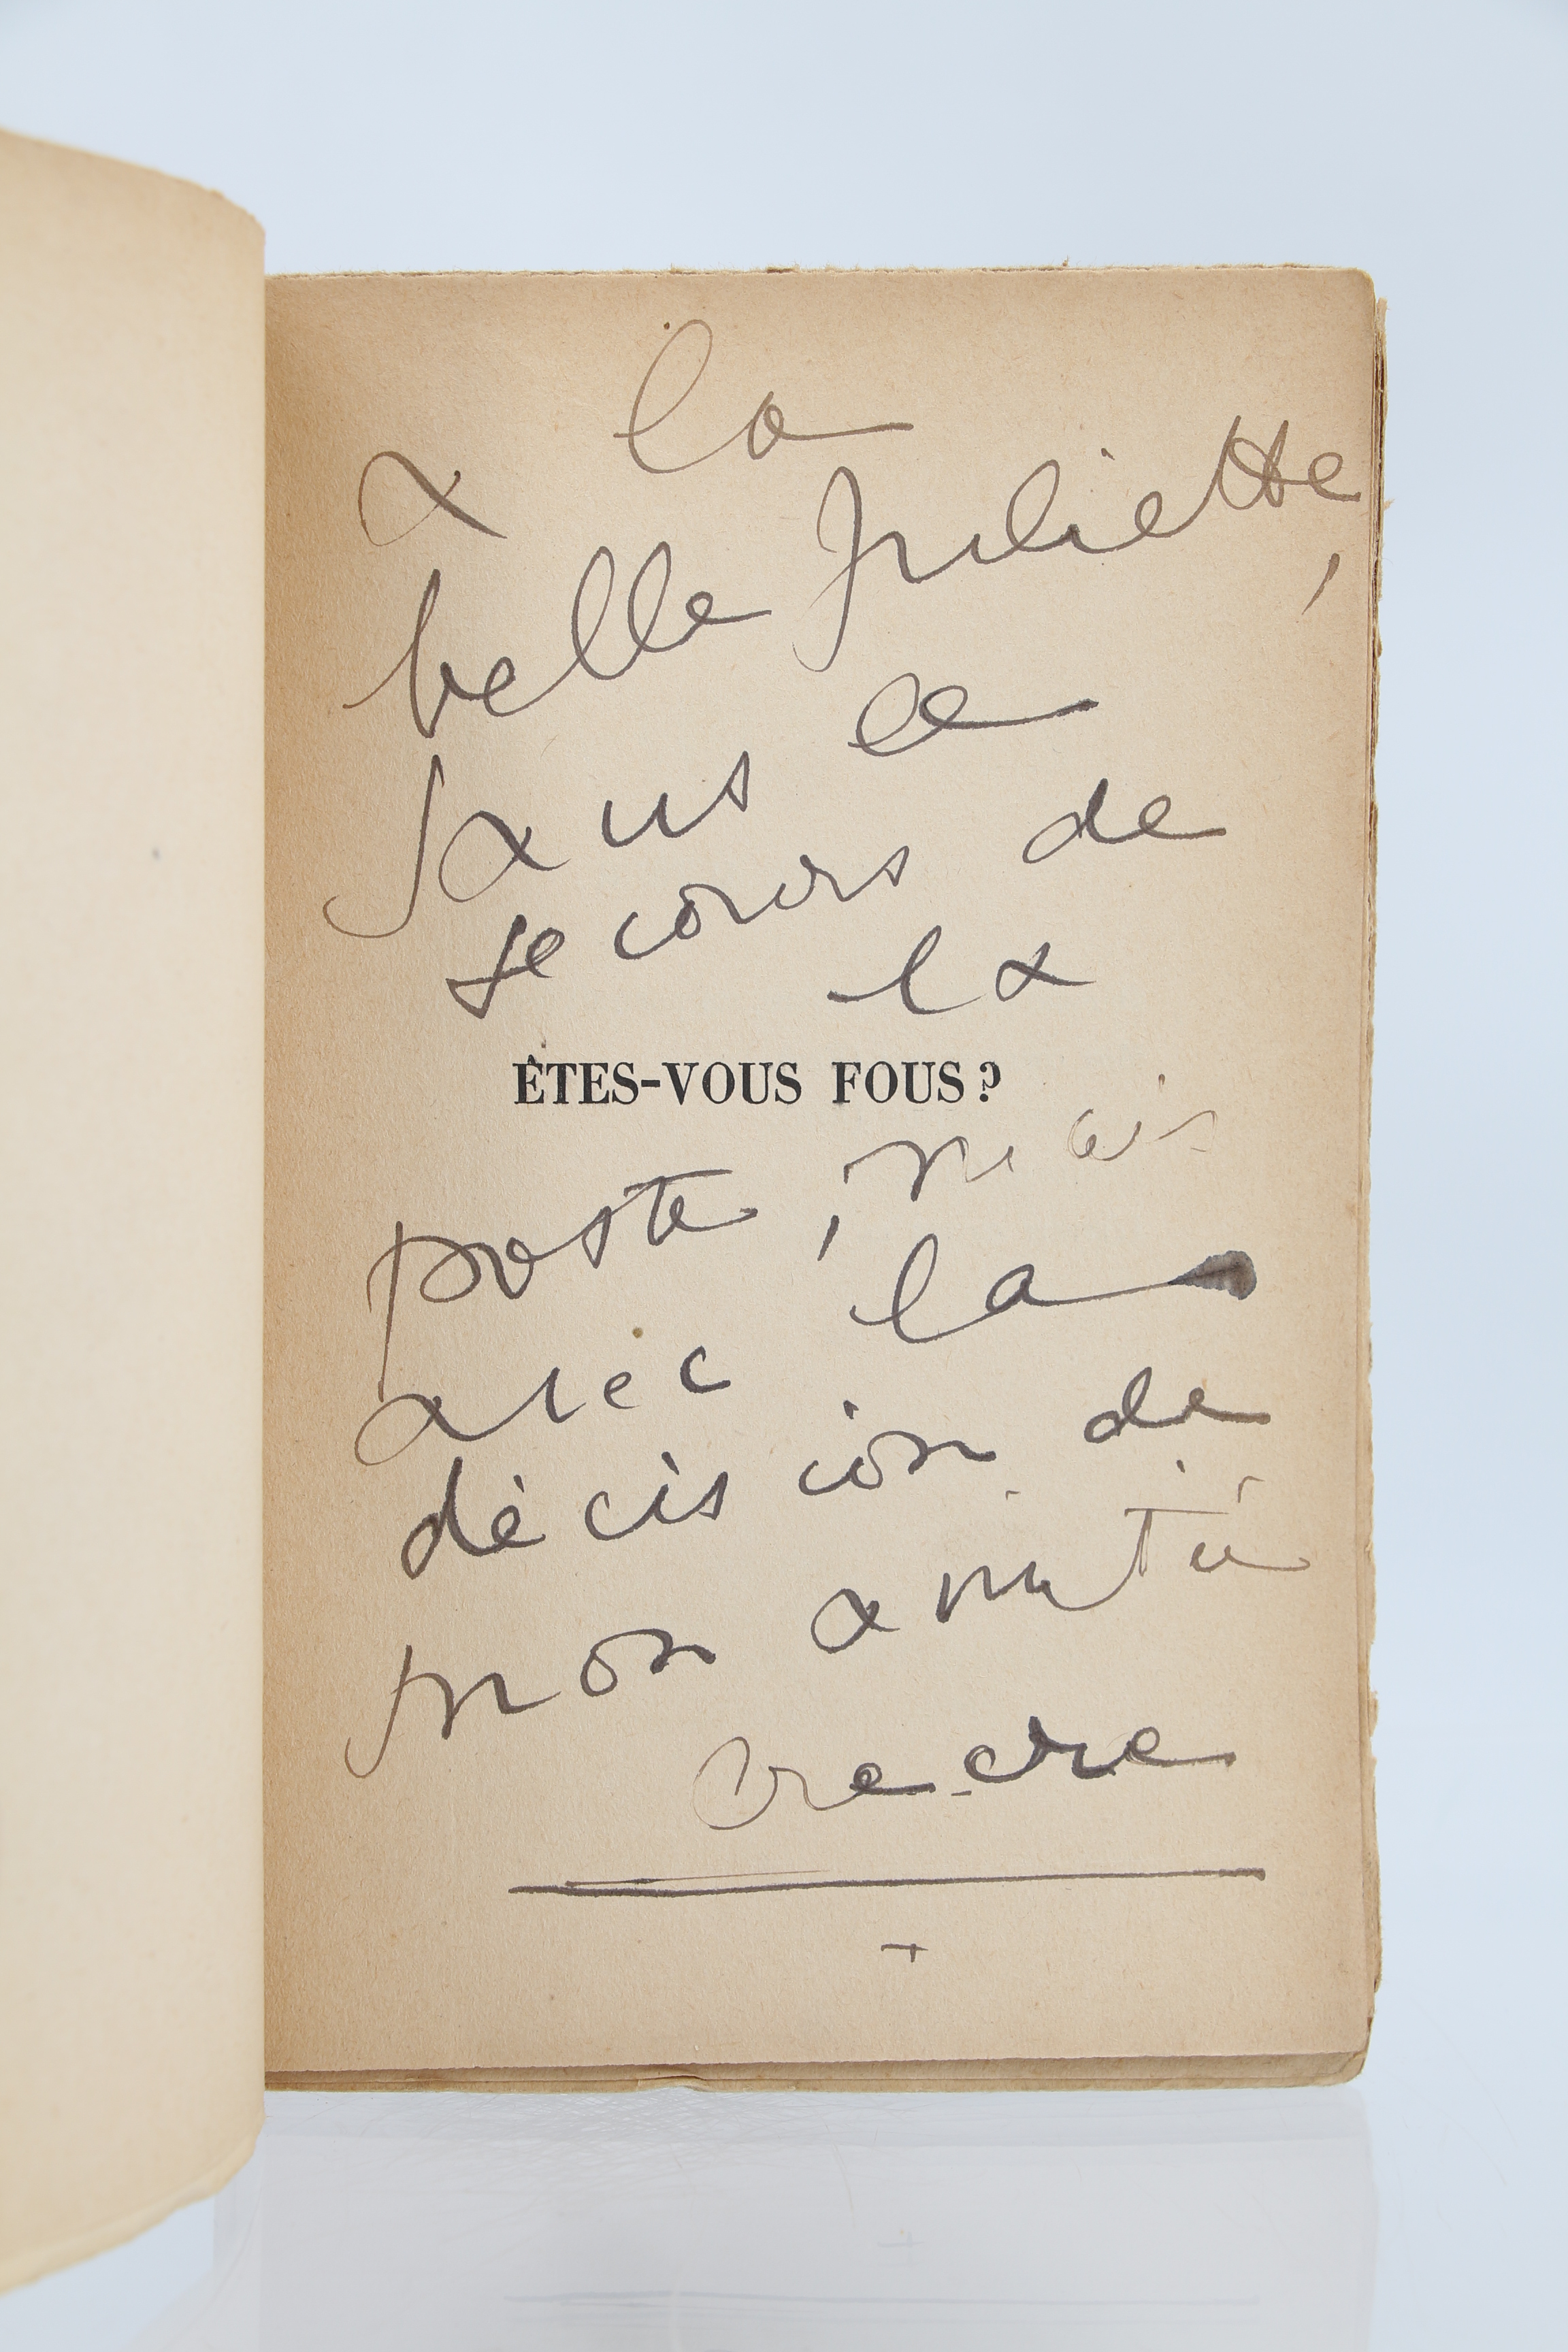 à la
belle Juliette,
sans le
secours de
la
ÊTES-VOUS FOUS ?
poste, mais
avec la
décision de
mon amitié
Crecre